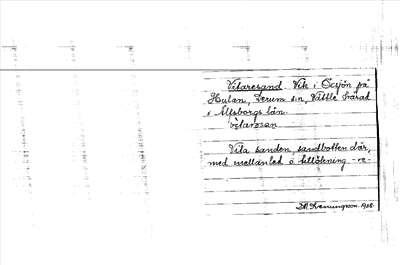 Vitaresand. Vik i Öxsjön på
Hulan, Lerum sn, Vättle härad
i Älfsborgs län.
vitaresan.
Vita sanden, sandbotten där,
med mellanled o tillökning -re-
1928